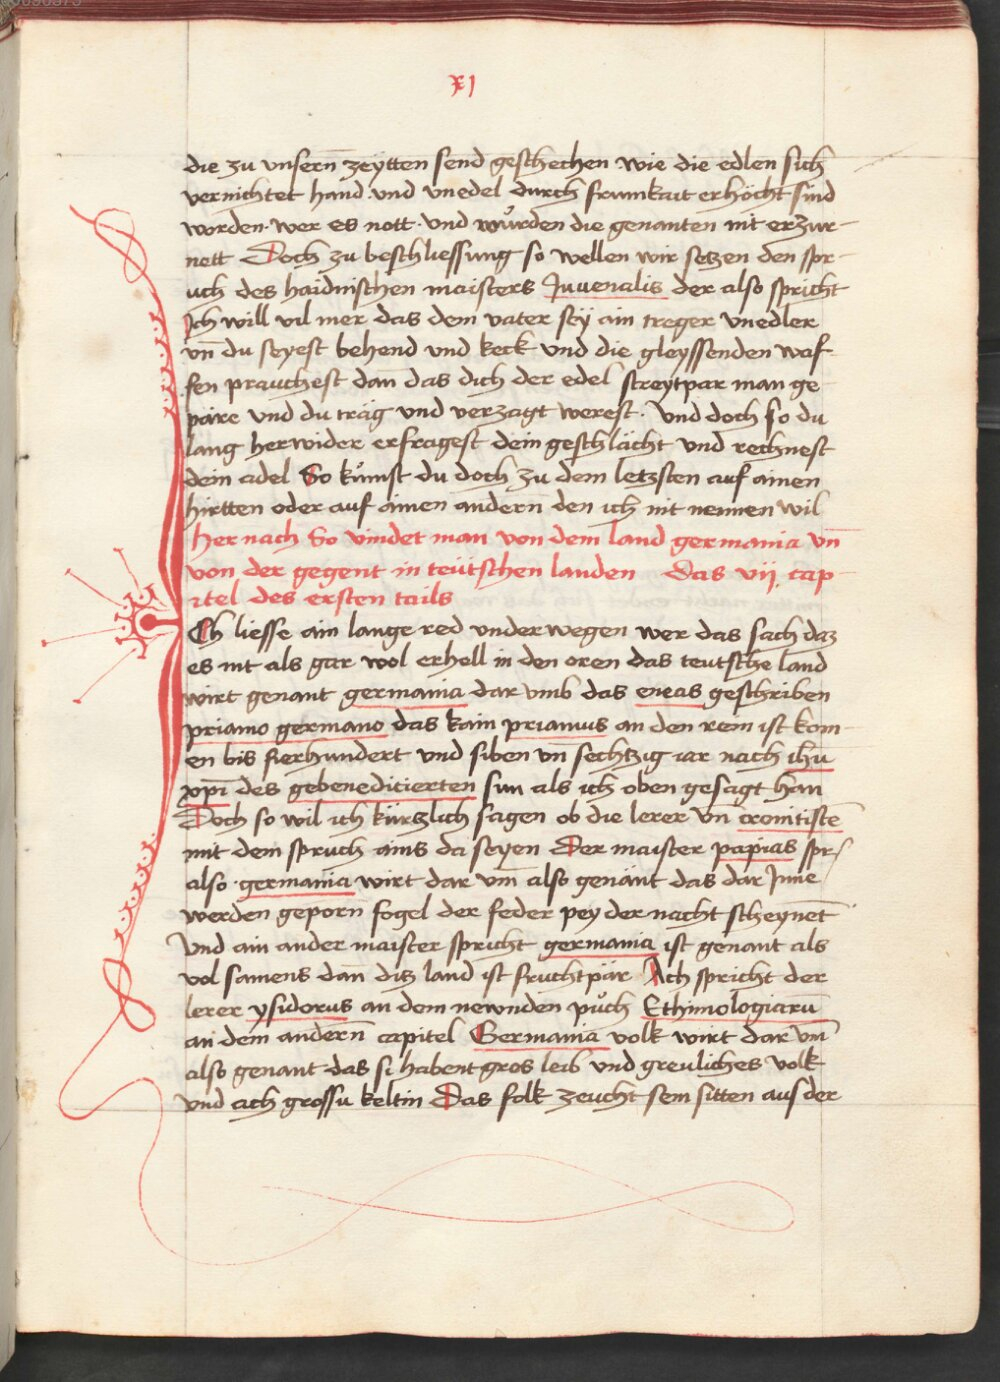 xj
die zu vnsern̄ zeÿtten send geschechen wie die edlen sich
vernichtet hand · vnd vnedel durch frumkait erhöcht sind
worden · wer es nott · vnd wůrden die genanten nit erzur-
nett Doch zu beschliessung so wellen wir setzen den spr-
uch des haidnischen maisters Juuenalis der also spricht
Ich will vil mer das dem vater seÿ ain treger vnedler
vn̄ du seyest behend vnd keck vnd die gleyssenden waf-
fen prauchest dan̄ das dich der edel streytpar man ge-
päre vnd du träg vnd verzagt werest · vnd doch so du
lang herwider erfragest dein geschlächt vnd rechnest
dein adel So kůmst du doch zu dem letzsten auf ainen
hirtten oder auf ainen andern̄ den ich nit nennen wil
Her nach So vindet man von dem land germania vn̄
von der gegent in teütschen landen Das vij cap-
itel des ersten tails
Ch liesse ain lange red vnderwegen wer das sach daz
es nit als gar wol erhell in den oren das teutsche land
wirt genant germania dar vmb das eneas geschriben
priamo germano das kain priamus an den rein ist kom-
en bis fierhundert vnd siben vn̄ sechtzig iar nach ihū
xp̄i des gebenedicierten sun als ich oben gesagt han
Doch so wil ich kürtzlich sagen ob die lerer vn̄ cronitistē
mit dem spruch ains da seyen Der maister papias spr
also germania wirt dar vm̄ also genant das dar Inne
werden geporn̄ fogel der feder pey der nacht scheynet
Vnd ain ander maister spricht germania ist genant als
vol samens dan̄ ditz land ist fruchtpär Ach spricht der
lerer ysidorus an dem newnden půch Ethimologiarū
an dem andern̄ capitel Germania volk wirt dar vm̄
also genant das si habent gros leib vnd greuliches volk
vnd ach grossu keltin Das folk zeucht sein sitten aus der